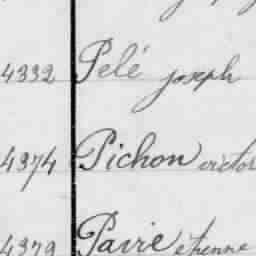 4332 Pelé joseph
4374 Pichon victor
4379 Paire etienne